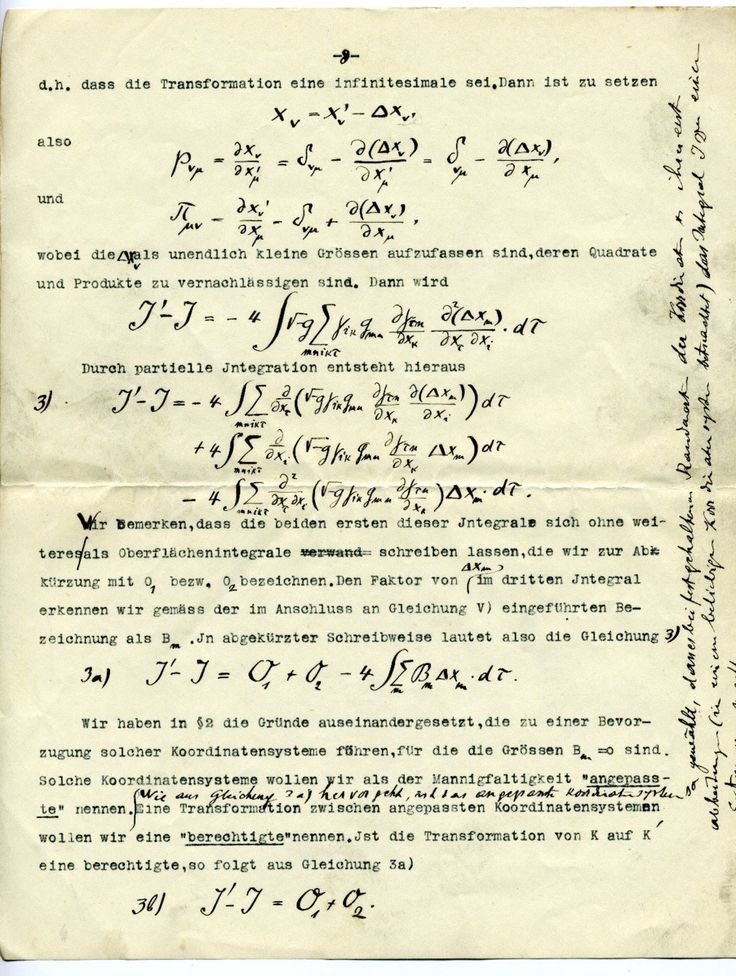 -8-
d.h. dass die Transformation eine infinitesimale sei.Dann ist zu setzen
x_ν = x_ν' − Δx_ν,
also
p_νμ = ∂x_ν/∂x_μ' = δ_νμ − ∂(Δx_ν)/∂x_μ' = δ_νμ − ∂(Δx_ν)/∂x_μ,
und
π_μν = ∂x_ν'/∂x_μ = δ_νμ + ∂(Δx_ν)/∂x_μ,
wobei die Δx_ν als unendlich kleine Grössen aufzufassen sind,deren Quadrate
und Produkte zu vernachlässigen sind. Dann wird
J'−J = − 4 ∫√-g ∑_mnikτ γ_ik g_mn ∂γ_τn/∂x_κ ∂²(Δx_m)/∂x_τ ∂x_i · dτ
Durch partielle Jntegration entsteht hieraus
3) J'−J = − 4 ∫∑_mnikτ ∂/∂x_τ (√-g γ_ik g_mn ∂γ_τn/∂x_κ ∂(Δx_m)/∂x_i) dτ
+ 4 ∫∑_mnikτ ∂/∂x_i (√-g γ_ik g_mn ∂γ_τn/∂x_κ Δx_m) dτ
− 4 ∫∑_mnikτ ∂²/∂x_τ ∂x_i (√-g γ_ik g_mn ∂γ_τn/∂x_κ) Δx_m · dτ.
Wir bemerken,dass die beiden ersten dieser Jntegrale sich ohne wei-
teres als Oberflächenintegrale verwand= schreiben lassen,die wir zur Ab-
kürzung mit O_1 bezw. O_2 bezeichnen.Den Faktor von Δx_m im dritten Jntegral
erkennen wir gemäss der im Anschluss an Gleichung V) eingeführten Be-
zeichnung als B_m .Jn abgekürzter Schreibweise lautet also die Gleichung 3)
3a) J'−J = O_1 + O_2 − 4 ∫∑_m B_m Δx_m · dτ.
Wir haben in §2 die Gründe auseinandergesetzt,die zu einer Bevor-
zugung solcher Koordinatensysteme führen,für die die Grössen B_m =0 sind.
Solche Koordinatensysteme wollen wir als der Mannigfaltigkeit "angepass-
te" nennen. Eine Transformation zwischen angepassten Koordinatensystemen
Wie aus Gleichung 3a) hervorgeht, ist das angepasste Koordinatensystem
wollen wir eine "berechtigte"nennen.Jst die Transformation von K auf K'
eine berechtigte,so folgt aus Gleichung 3a)
3b) J'−J = O_1 + O_2.
gewählt, dass bei festgehaltenen Randwerten der Koordinaten
beliebigen Koordinatensystem betrachtet) das Integral J